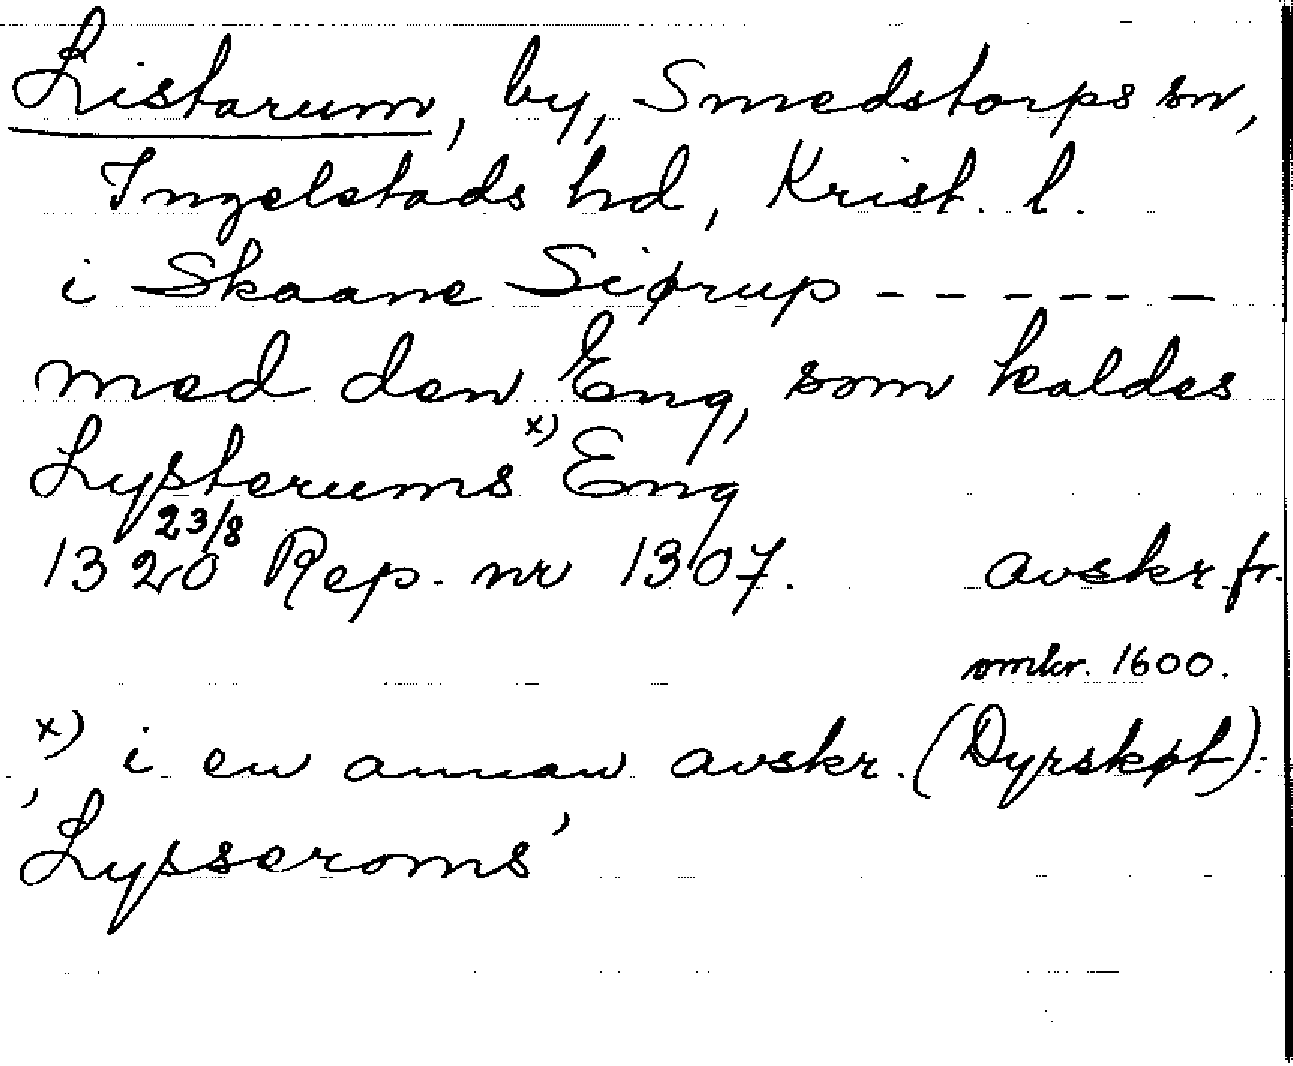 Listarum, by, Smedstorps sn,
Ingelstads hd, Krist. l.
i Skaane Siørup - - - - - -
med den Eng, som kaldes
Lysterums x) Eng
1320 23/8 Rep. nr 1307. avskr. fr.
omkr. 1600.
x) i en annan avskr. (Dyrskøt):
'Lysseroms'